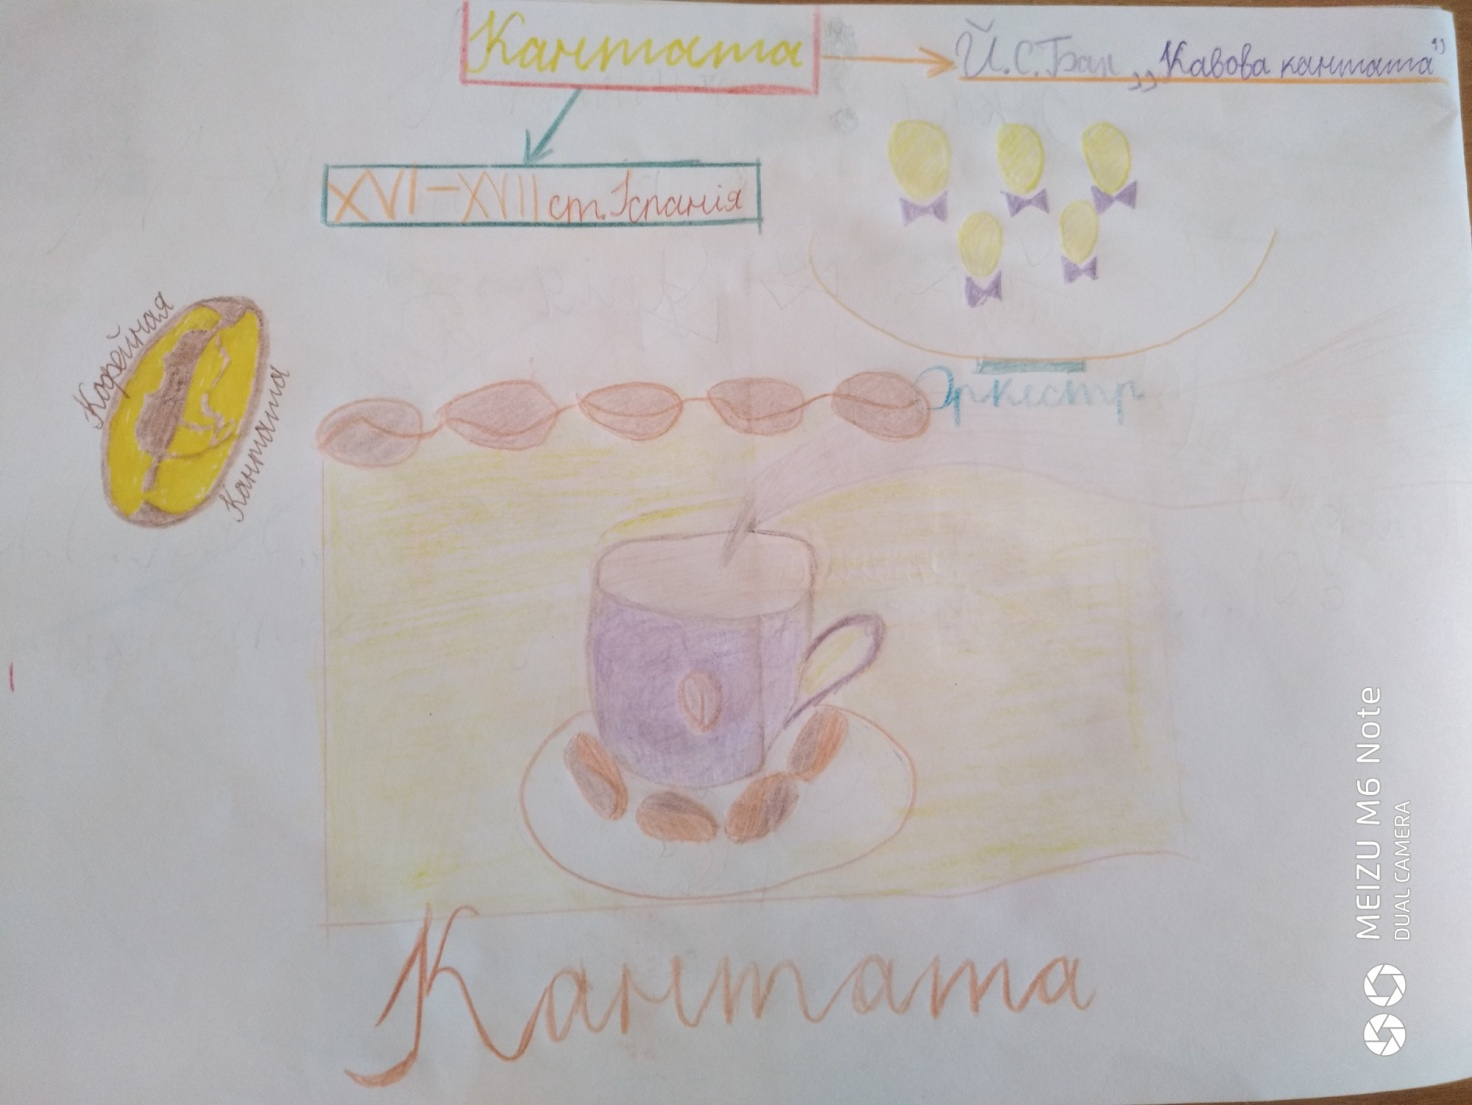 Кантата
Й.С.Бах „Кавова кантата"
XVI-XVII ст. Іспанія
Кофейная
Кантата
Оркестр
Кантата
MEIZU M6 Note
DUAL CAMERA